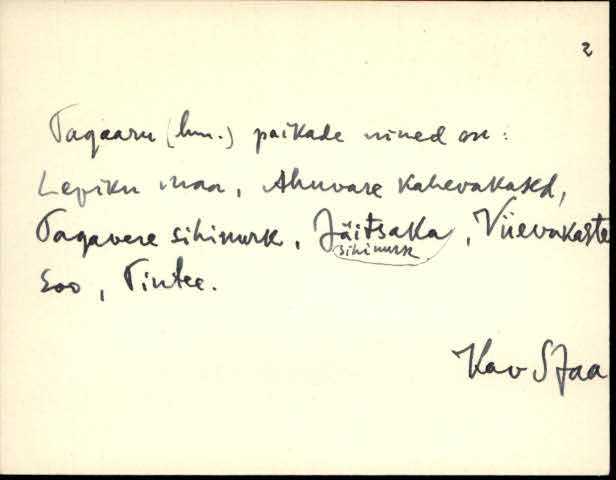 2
Tagaaru (hm.) paikade nimed on:
Lepiku maa, Ahuvare Kahevakased,
Tagavere sihinurk, Jäitsaka, Viievakaste
sihinurk
soo, Tintee.
Kav SJaa